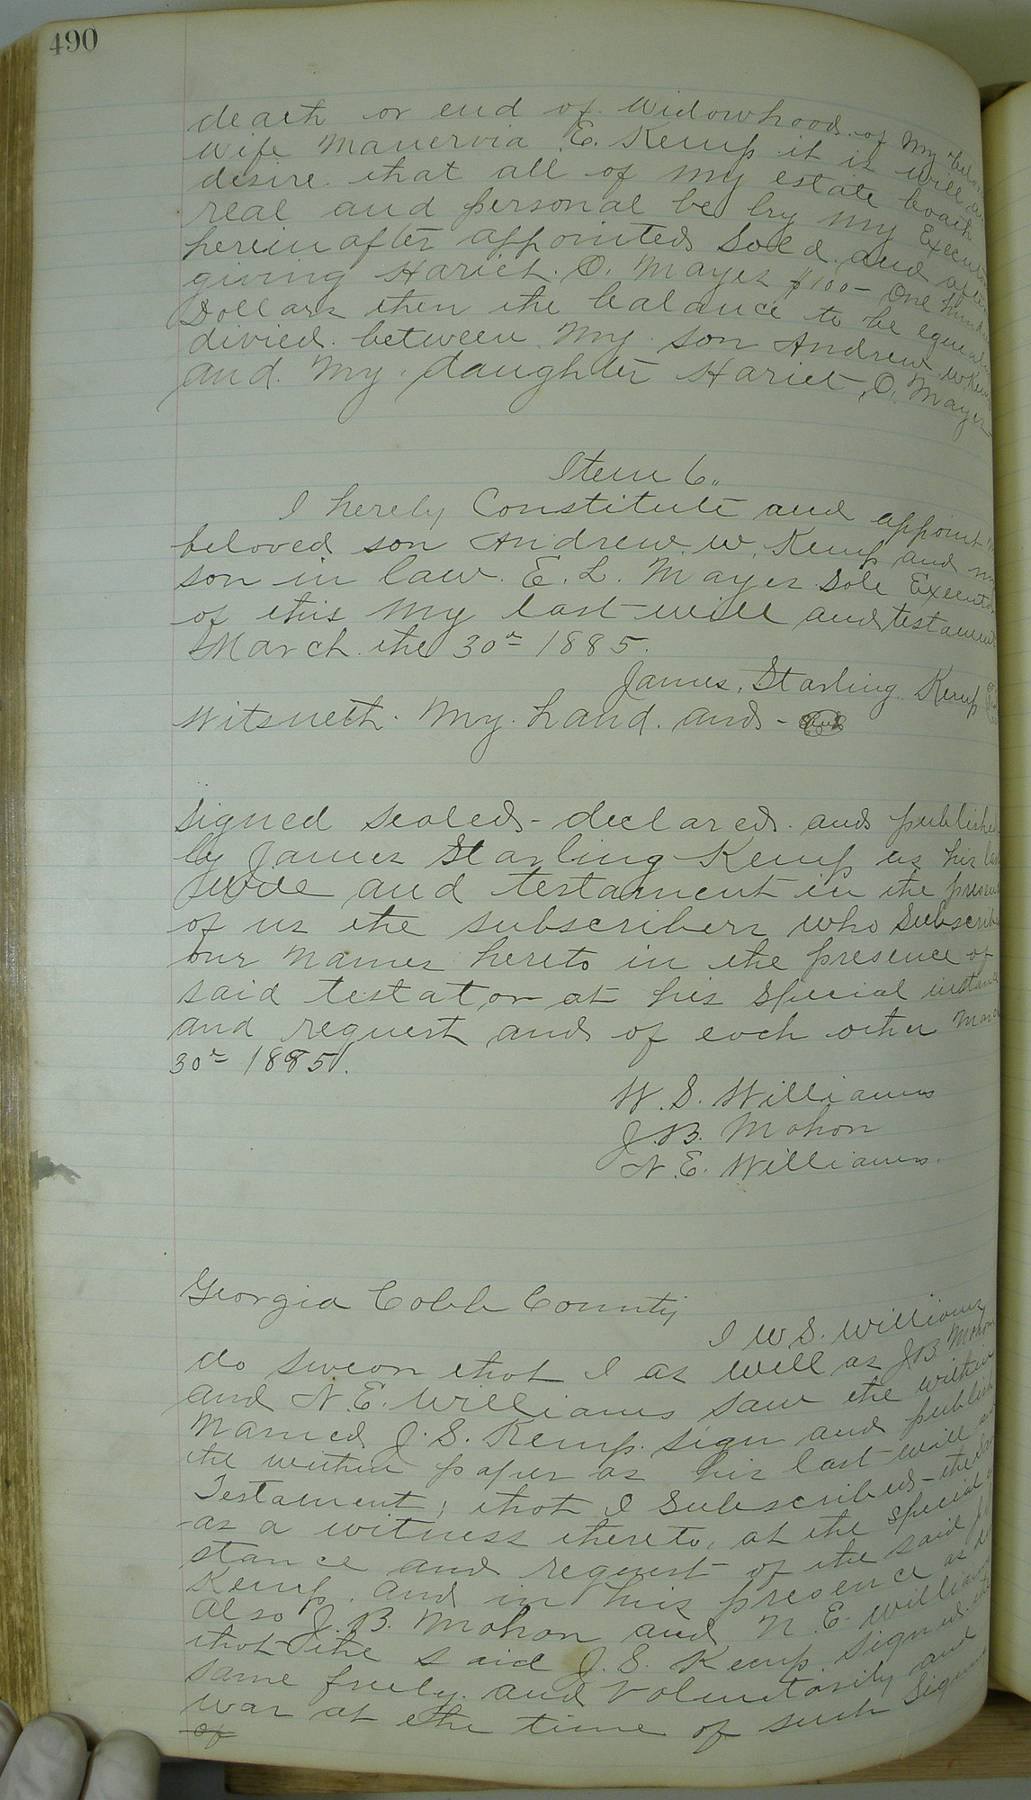 490
death or end of widowhood of my
wife Manervia E. Kemp it is will
desire that all of my estate boath
real and personal be by my
hereinafter appointed sold and after
giving Hariet. O. Mayes $100- One
Dollars then the balance to be
divied between my son Andrew W.
and my daughter Hariet, O, Mayes
Item 6.
I hereby Constitute and appoint
beloved son Andrew. W. Kemp and
son in law E. L. Mayes Sole
of this my last will and
March the 30th 1885.
James, Starling Kemp
Witsneth. My hand. and -
signed sealed - declared and
by James Starling Kemp as his
will and testament in the
of us the subscribers who
our names hereto in the presence of
said testator at his special
and request and of each other
30th 1885.
W. S. Williams
J. B. Mohon
N. E. Williams.
Georgia Cobb County
I W. S. Williams
do swear that I as well as J B Mohon
and N. E. Williams saw the within
named J. S. Kemp. sign and
the within paper as his last will
Testament; that I subscribed
as a witness thereto, at the special
stance and request of the said
Kemp. and in his presence as
also J. B. Mohon and N. E.
that the said J. S. Kemp. signed
same freely. and Voluntarily and
was at the time of such
of